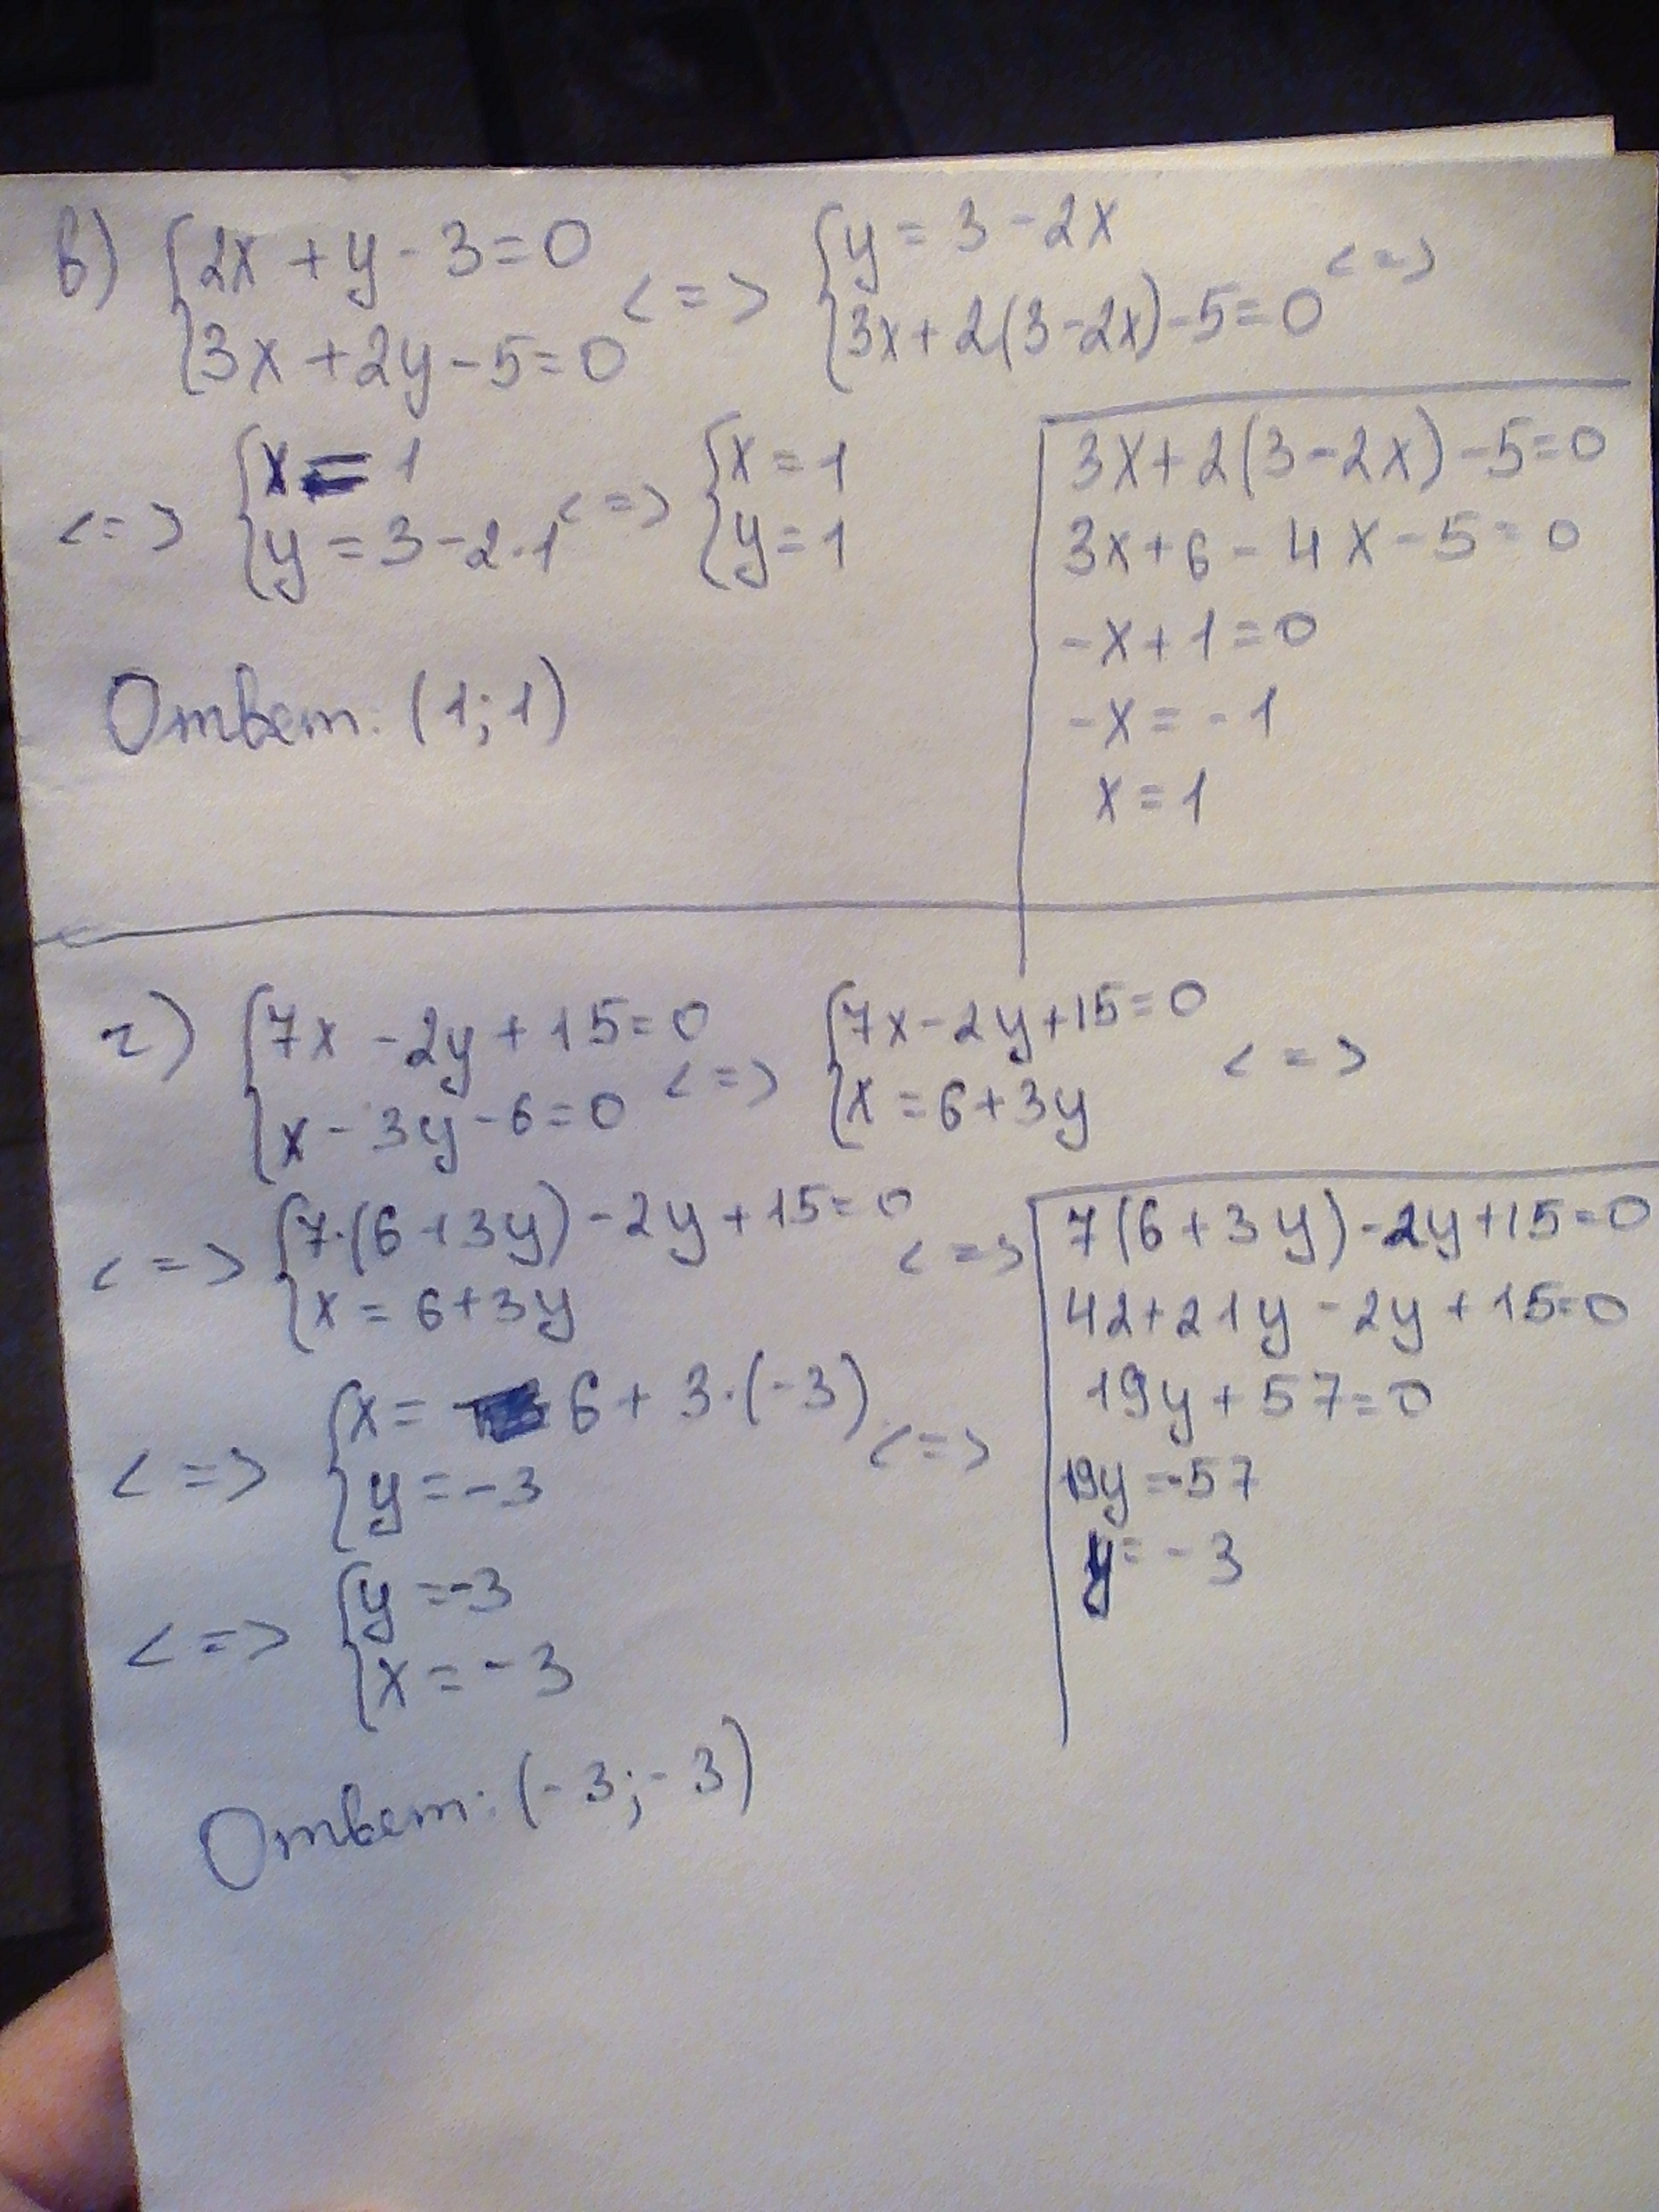 в) {2x + y - 3 = 0 <=> {y = 3 - 2x
{3x + 2y - 5 = 0 {3x + 2(3 - 2x) - 5 = 0 <=>
<=> {x = 1 <=> {x = 1
{y = 3 - 2·1 {y = 1
Ответ: (1; 1)
3x + 2(3 - 2x) - 5 = 0
3x + 6 - 4x - 5 = 0
-x + 1 = 0
-x = -1
x = 1
г) {7x - 2y + 15 = 0 <=> {7x - 2y + 15 = 0 <=>
{x - 3y - 6 = 0 {x = 6 + 3y
<=> {7·(6 + 3y) - 2y + 15 = 0 <=>
{x = 6 + 3y
<=> {x = 6 + 3·(-3) <=>
{y = -3
<=> {y = -3
{x = -3
Ответ: (-3; -3)
7(6 + 3y) - 2y + 15 = 0
42 + 21y - 2y + 15 = 0
19y + 57 = 0
19y = -57
y = -3